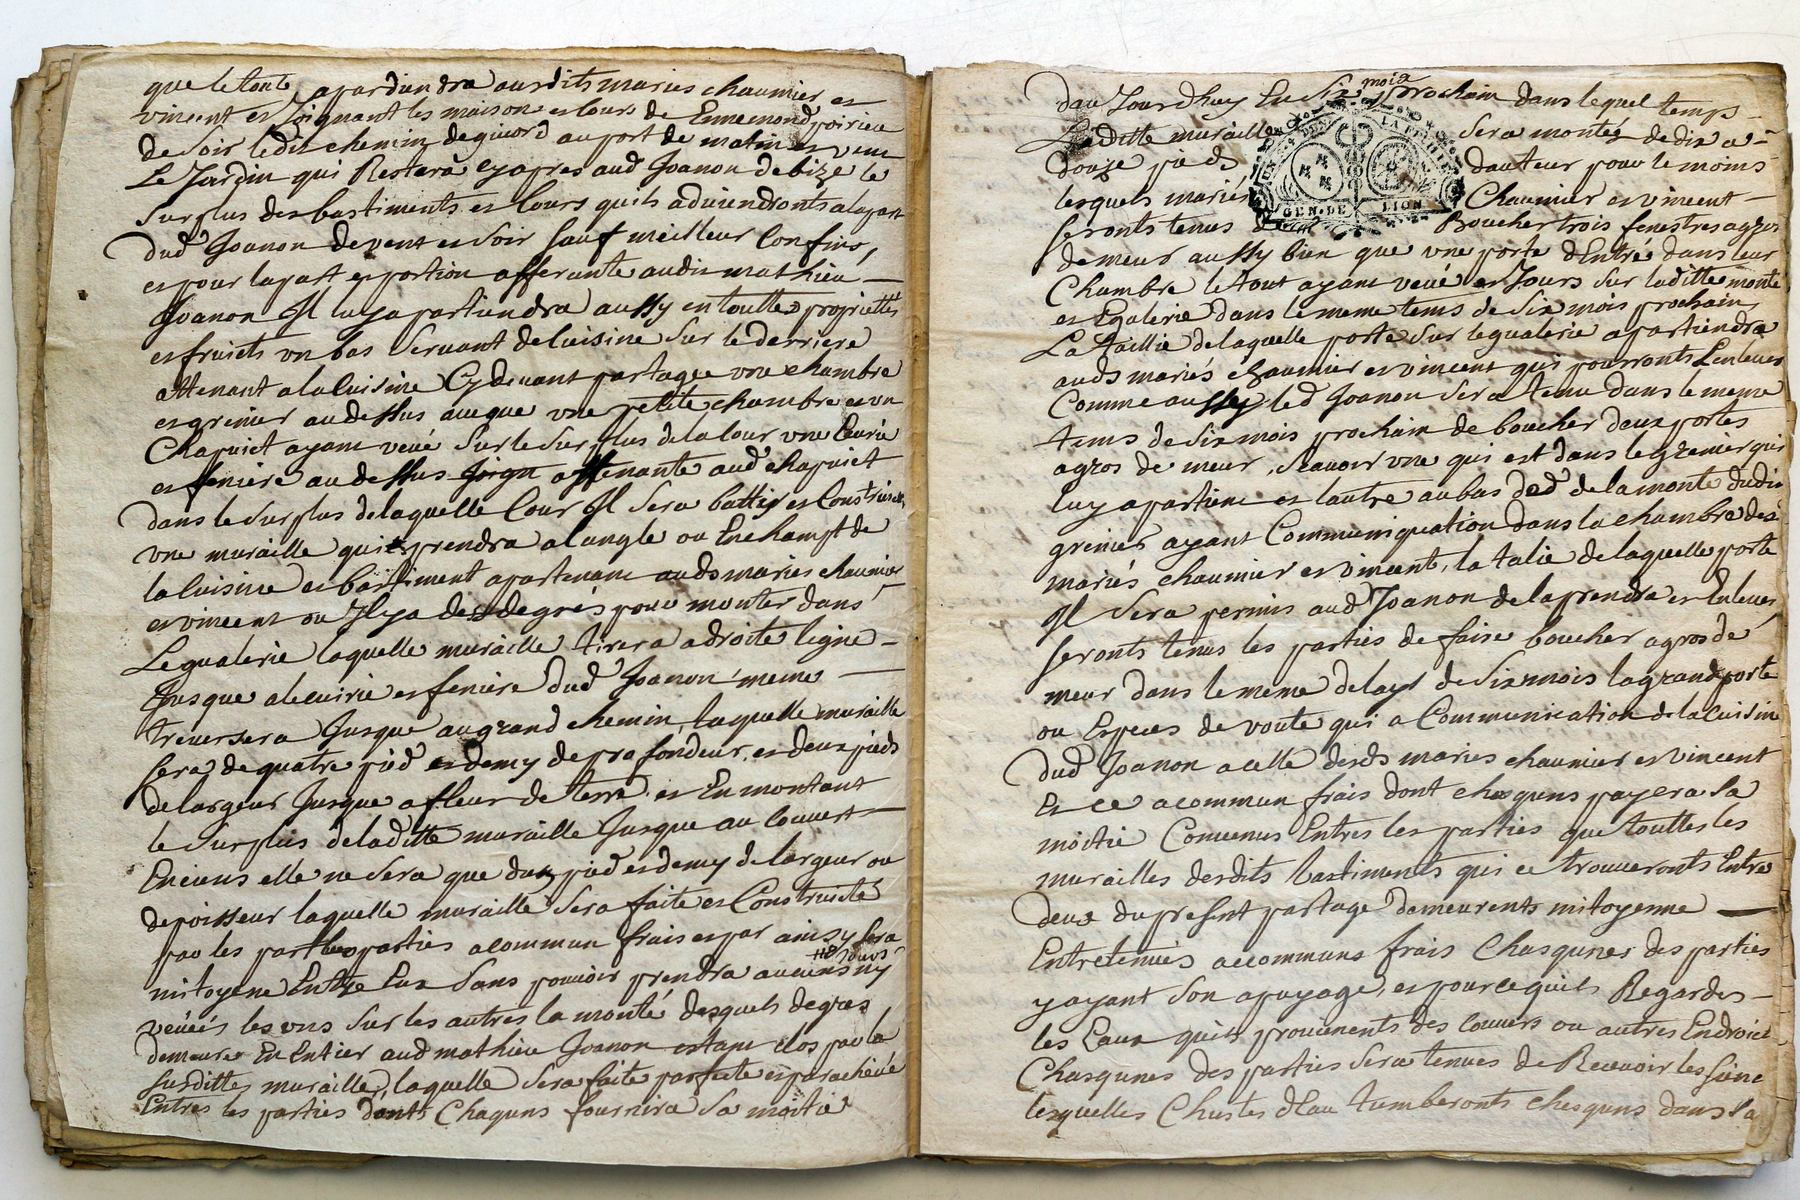 que le tout apartiendra ausdits maries chaumier et
vincent et Joignant les maison et cour de Ennemond poirieu
de Soir ledit chemin de givord au port de matin et vent
Le Jardin qui Restera cy apres aud Joanon de bize le
Surplus des bastiments et Cours quils adviendronts a la part
dud Joanon de vent et Soir Sauf meilleur Confins,
et pour la part et portion afferante audit mathieu
Joanon Il luy apartiendra aussy en toutte propriettés
et fruicts un bas Servant de Cuisine Sur le derriere
attenant a la Cuisine Cy devant partagée une chambre
et grenier au dessus avec que une petite chambre et un
Chapuict ayant veüe Sur le Surplus de la Cour une Ecurie
et feniere au dessus Joign attenante aud chapuict
dans le Surplus de laquelle Cour Il Sera battir et Construict
une muraille qui prendra a l angle ou Enchampt de
la Cuisine et batiment apartenant auds maries chaumier
et vincent ou Il y a des degrés pour monter dans
Legualerie laquelle muraille tirera a droite ligne
Jusque a lecuirie et feniere dud Joanon meme
treversera Jusque au grand chemin, laquelle muraille
sera de quatre pied et demy de profondeur, et deux pieds
de largeur Jusque a fleur de terre et En montant
le Surplus de laditte muraille Jusque au Couvert
Enciens elle ne Sera que dun pied et demy de largeur ou
depoisseur laquelle muraille Sera faite et Construicte
par les parties a commun frais et par ainsy sera
mitoyene Entre Eux Sans pouvoir prendre aucuns Jours ny
veüeës les uns Sur les autres la monté desquels degrés
demeurer En Entier aud mathieu Joanon estant clos par la
susditte muraille, laquelle Sera faite parfaite et parachevé
Entres les parties donts Chaquns fournira Sa moitié
dau Jourdhuy En Six mois prochain dans lequel temps
Laditte muraille Sera montée de dix a
douze pieds dauteur pour le moins
lesquels mariés Chaumier et vincent
seronts tenus de Boucher trois fenestres agros
de meur aussy bien que une porte dEntré dans leur
Chambre le tout ayant veüe et Jours Sur laditte monté
et Egalerie dans le meme tems de Six mois prochain
La taillie de laquelle porte Sur legualerie apartiendra
auds mariés chaumier et vincent qui pourronts Lenlever
Comme aussy led Joanon Sera tenu dans le meme
tems de Six mois prochain de boucher deux portes
agros de meur, Scavoir une qui est dans le grenier qui
luy apartient et lautre au bas de la monté dudit
grenier ayant Communiquation dans la chambre des
mariés chaumier et vincent, la talie de laquelle porte
Il Sera permis aud Joanon de la prendre et Enlever,
seronts tenus les parties de faire boucher agros de
meur dans le meme delays de Six mois la grand porte
ou Especes de voute qui a Communication de la cuisine
dud Joanon a celle desds maries chaumier et vincent
Et ce a commun frais dont chesquns payera Sa
moitié Convenus Entres les parties que touttes les
murailles desdits bastiments qui ce trouveronts Entre
deux du present partage demeurents mitoyenne
Entretenues a communs frais Chasqunes des parties
y ayant Son apuyage, et pour ce quils Regardes
les Eaux quils prouvenents des couvers ou autres Endroict
Chasqunes des parties Sera tenues de Recevoir les siene
lesquelles Chustes dEau tumberonts chesquns dans la
GEN. DE LION